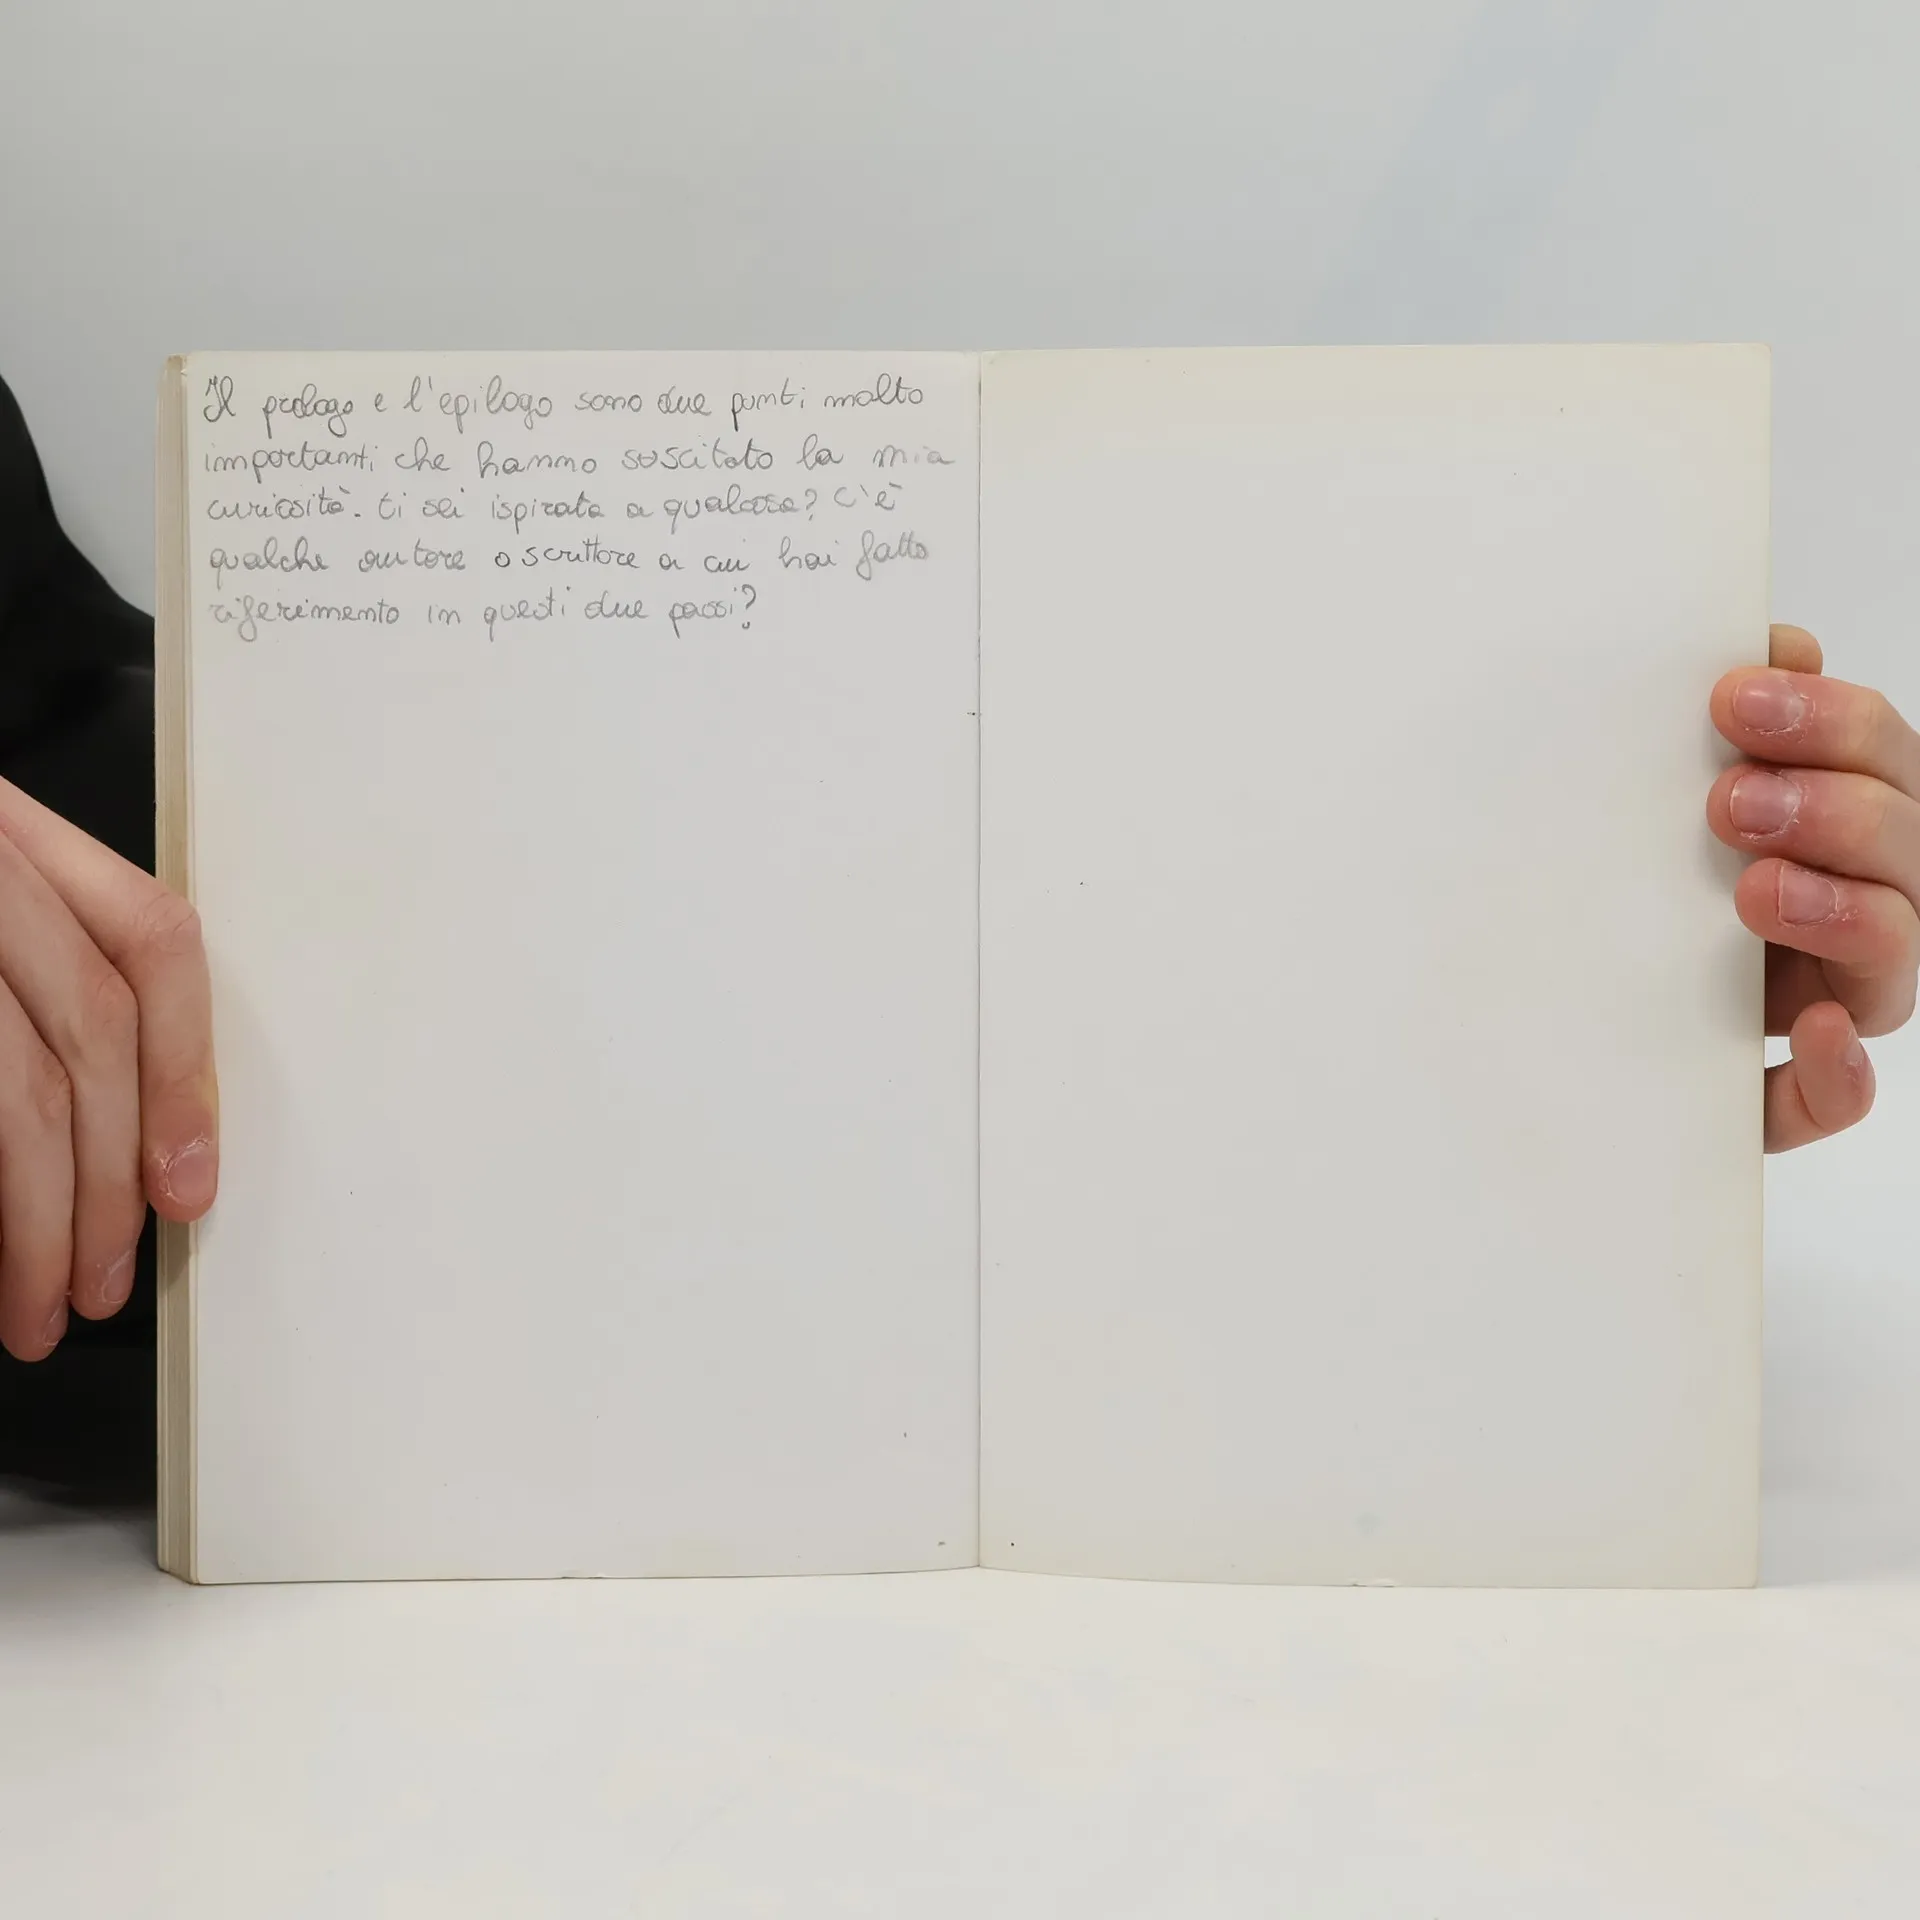 Il prologo e l'epilogo sono due punti molto
importanti che hanno suscitato la mia
curiosità. ti sei ispirata a qualcosa? C'è
qualche autore o scrittore a cui hai fatto
riferimento in questi due passi?